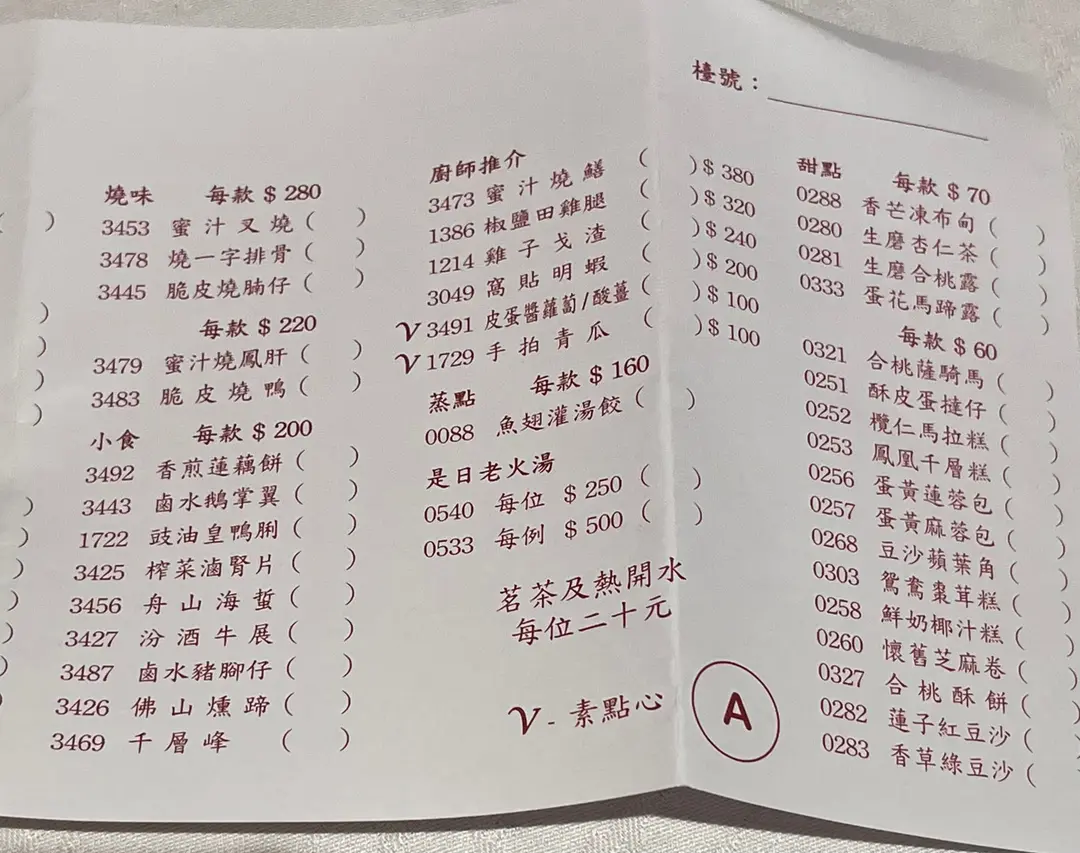 檯號：
燒味 每款 $ 280
3453 蜜汁叉燒 ( )
3478 燒一字排骨 ( )
3445 脆皮燒腩仔 ( )
每款 $ 220
3479 蜜汁燒鳳肝 ( )
3483 脆皮燒鴨 ( )
小食 每款 $ 200
3492 香煎蓮藕餅 ( )
3443 鹵水鵝掌翼 ( )
1722 豉油皇鴨脷 ( )
3425 榨菜滷腎片 ( )
3456 舟山海蜇 ( )
3427 汾酒牛展 ( )
3487 鹵水豬腳仔 ( )
3426 佛山燻蹄 ( )
3469 千層峰 ( )
廚師推介
3473 蜜汁燒鱔 ( ) $ 380
1386 椒鹽田雞腿 ( ) $ 320
1214 雞子戈渣 ( ) $ 240
3049 窩貼明蝦 ( ) $ 200
V 3491 皮蛋醬蘿蔔/酸薑 ( ) $ 100
V 1729 手拍青瓜 ( ) $ 100
蒸點 每款 $ 160
0088 魚翅灌湯餃 ( )
是日老火湯
0540 每位 $ 250 ( )
0533 每例 $ 500 ( )
茗茶及熱開水
每位二十元
V - 素點心
A
甜點 每款 $ 70
0288 香芒凍布甸 ( )
0280 生磨杏仁茶 ( )
0281 生磨合桃露 ( )
0333 蛋花馬蹄露 ( )
每款 $ 60
0321 合桃薩騎馬 ( )
0251 酥皮蛋撻仔 ( )
0252 欖仁馬拉糕 ( )
0253 鳳凰千層糕 ( )
0256 蛋黃蓮蓉包 ( )
0257 蛋黃麻蓉包 ( )
0268 豆沙蘋葉角 ( )
0303 鴛鴦棗茸糕 ( )
0258 鮮奶椰汁糕 ( )
0260 懷舊芝麻卷 ( )
0327 合桃酥餅 ( )
0282 蓮子紅豆沙 (
0283 香草綠豆沙 (